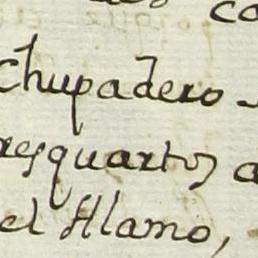 co
chupadero
resquartos a
el Alamo,